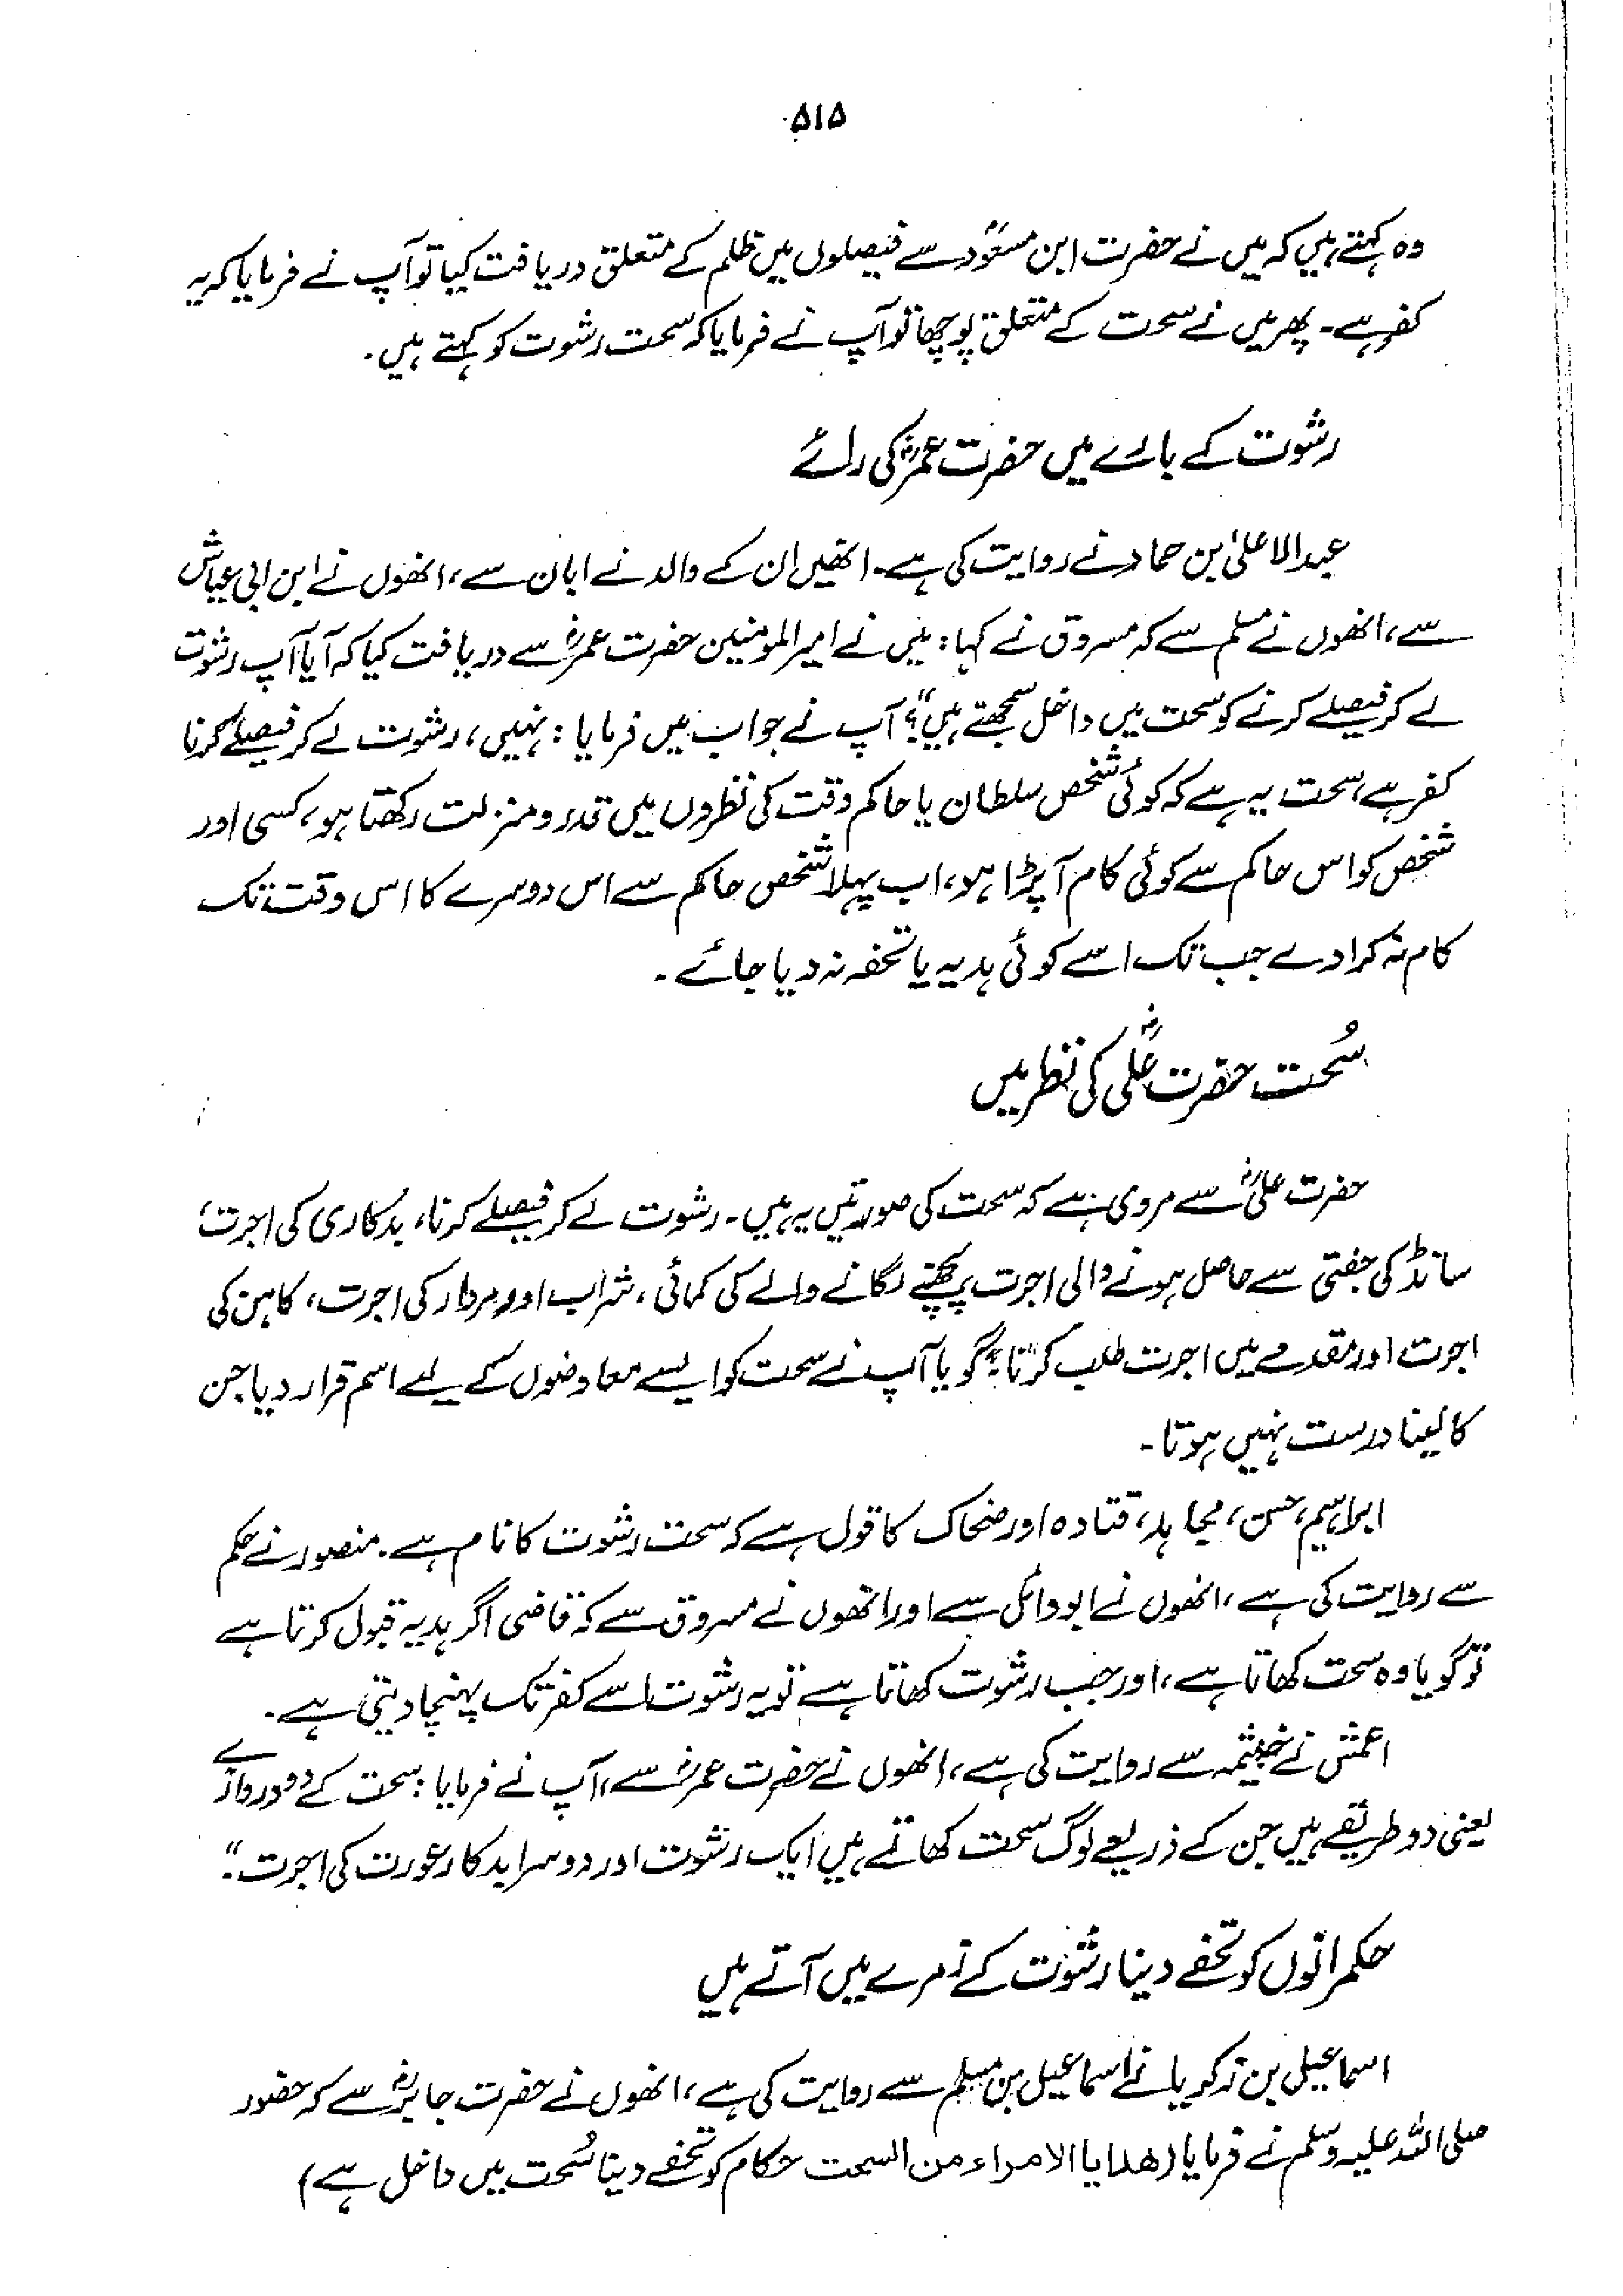 ۵۱۵
وہ کہتے ہیں کہ میں نے حضرت ابن مسعودؓ سے فیصلوں میں ظلم کے متعلق دریافت کیا تو آپ نے فرمایا کہ یہ
کفر ہے۔ پھر میں نے سحت کے متعلق پوچھا تو آپ نے فرمایا کہ سحت رشوت کو کہتے ہیں۔
رشوت کے بارے میں حضرت عمرؓ کی رائے
عبدالاعلیٰ بن حماد نے روایت کی ہے۔ انھیں ان کے والد نے ابان سے، انھوں نے ابن ابی عیاش
سے، انھوں نے مسلم سے کہ مسروق نے کہا: میں نے امیرالمومنین حضرت عمرؓ سے دریافت کیا کہ آیا آپ رشوت
لے کر فیصلے کرنے کو سحت میں داخل سمجھتے ہیں"؟ آپ نے جواب میں فرمایا: نہیں، رشوت لے کر فیصلے کرنا
کفر ہے، سحت یہ ہے کہ کوئی شخص سلطان یا حاکم وقت کی نظروں میں قدر و منزلت رکھتا ہو، کسی اور
شخص کو اس حاکم سے کوئی کام آپڑا ہو، اب پہلا شخص حاکم سے اس دوسرے کا اس وقت تک
کام نہ کرادے جب تک اسے کوئی ہدیہ یا تحفہ نہ دیا جائے۔
سُحت حضرت علیؓ کی نظر میں
حضرت علیؓ سے مروی ہے کہ سحت کی صورتیں یہ ہیں۔ رشوت لے کر فیصلے کرنا، بدکاری کی اجرت،
سانڈ کی جفتی سے حاصل ہونے والی اجرت، پچھنے لگانے والے کی کمائی، شراب اور مردار کی اجرت، کاہن کی
اجرت اور مقدمے میں اجرت طلب کرنا؛ گویا آپ نے سحت کو ایسے معاوضوں کے لیے اسم قرار دیا جن
کا لینا درست نہیں ہوتا۔
ابراہیم، حسن، مجاہد، قتادہ اور ضحاک کا قول ہے کہ سحت رشوت کا نام ہے۔ منصور نے حکم
سے روایت کی ہے، انھوں نے ابو وائل سے اور انھوں نے مسروق سے کہ قاضی اگر ہدیہ قبول کرتا ہے
تو گویا وہ سحت کھاتا ہے، اور جب رشوت کھاتا ہے تو یہ رشوت اسے کفر تک پہنچا دیتی ہے۔
اعمش نے خیثمہ سے روایت کی ہے، انھوں نے حضرت عمرؓ سے، آپ نے فرمایا: سحت کے دو دروازے
یعنی دو طریقے ہیں جن کے ذریعے لوگ سحت کھاتے ہیں ایک رشوت اور دوسرا بدکار عورت کی اجرت"۔
حکمرانوں کو تحفے دینا رشوت کے زمرے میں آتے ہیں
اسماعیل بن زکریا نے اسماعیل بن مسلم سے روایت کی ہے، انھوں نے حضرت جابرؓ سے کہ حضور
صلی اللہ علیہ وسلم نے فرمایا (هدايا الامراء من السحت حکام کو تحفے دینا سُحت میں داخل ہے)